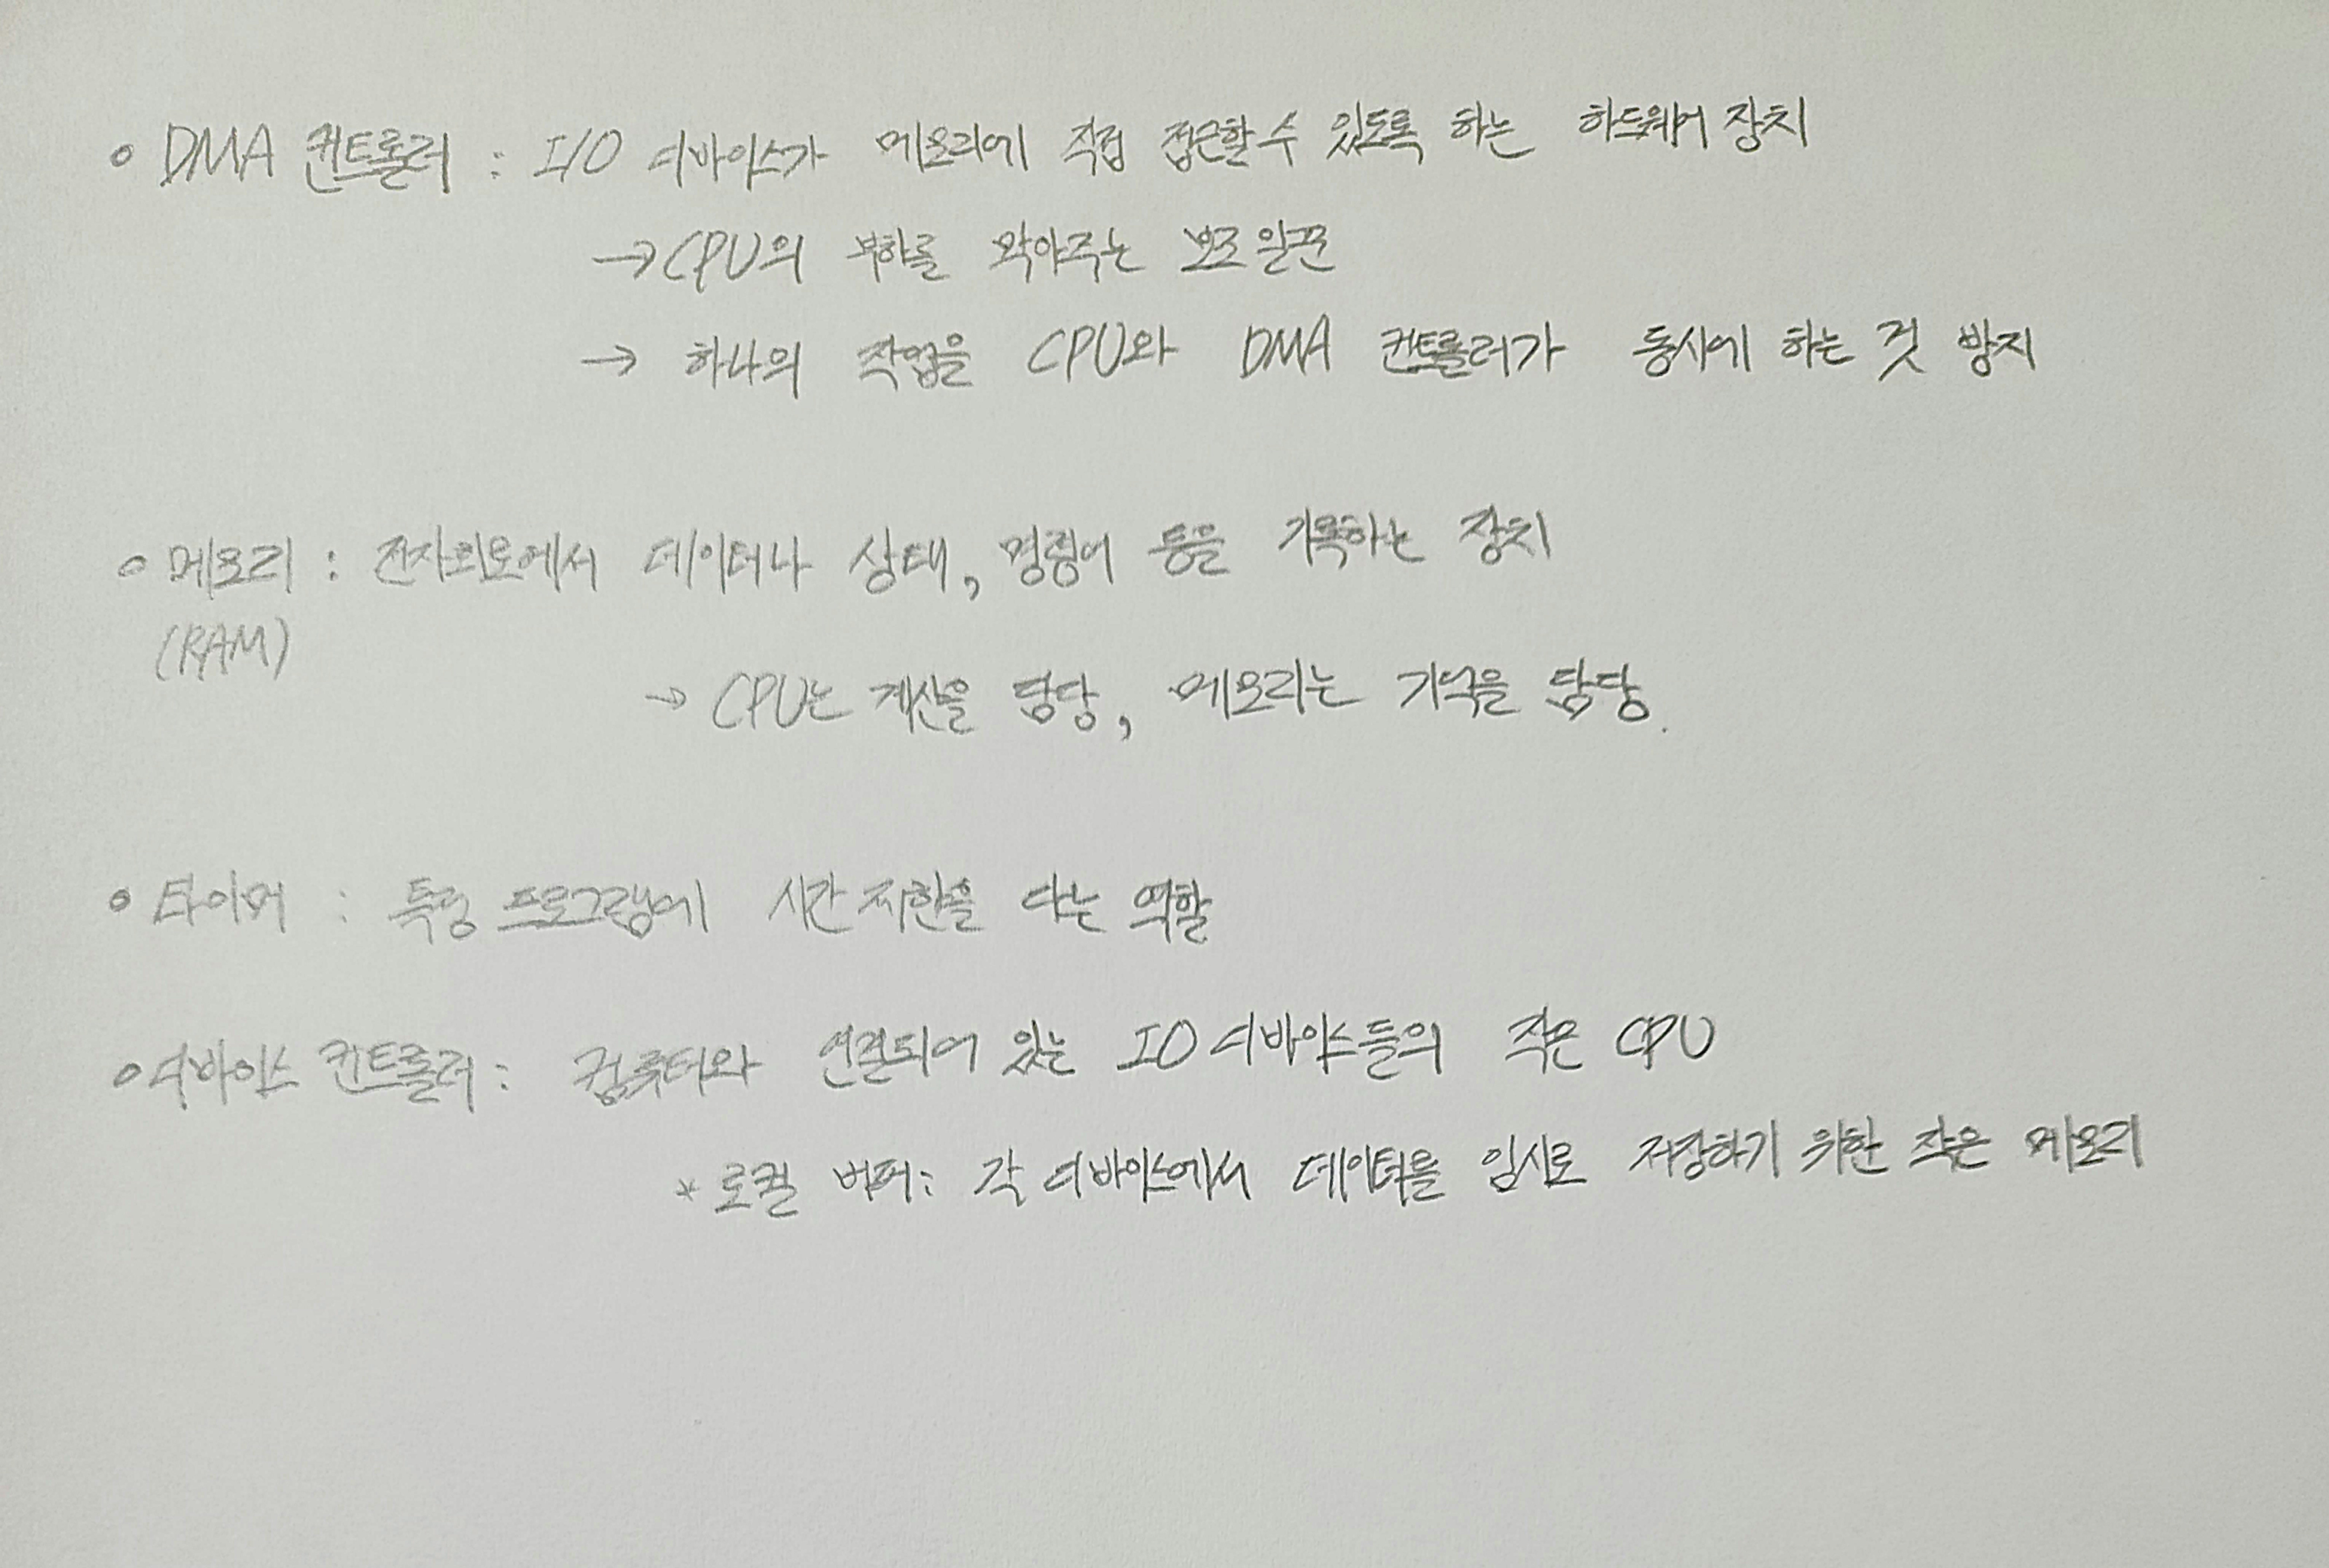 • DMA 컨트롤러 : I/O 디바이스가 메모리에 직접 접근할 수 있도록 하는 하드웨어 장치
→ CPU의 부하를 막아주는 보조 일꾼
→ 하나의 작업을 CPU와 DMA 컨트롤러가 동시에 하는 것 방지
• 메모리 : 전자회로에서 데이터나 상태, 명령어 등을 기록하는 장치
(RAM)
→ CPU는 계산을 담당, 메모리는 기억을 담당.
• 타이머 : 특정 프로그램에 시간 제한을 다는 역할
• 디바이스 컨트롤러 : 컴퓨터와 연결되어 있는 IO 디바이스들의 작은 CPU
* 로컬 버퍼 : 각 디바이스에서 데이터를 임시로 저장하기 위한 작은 메모리